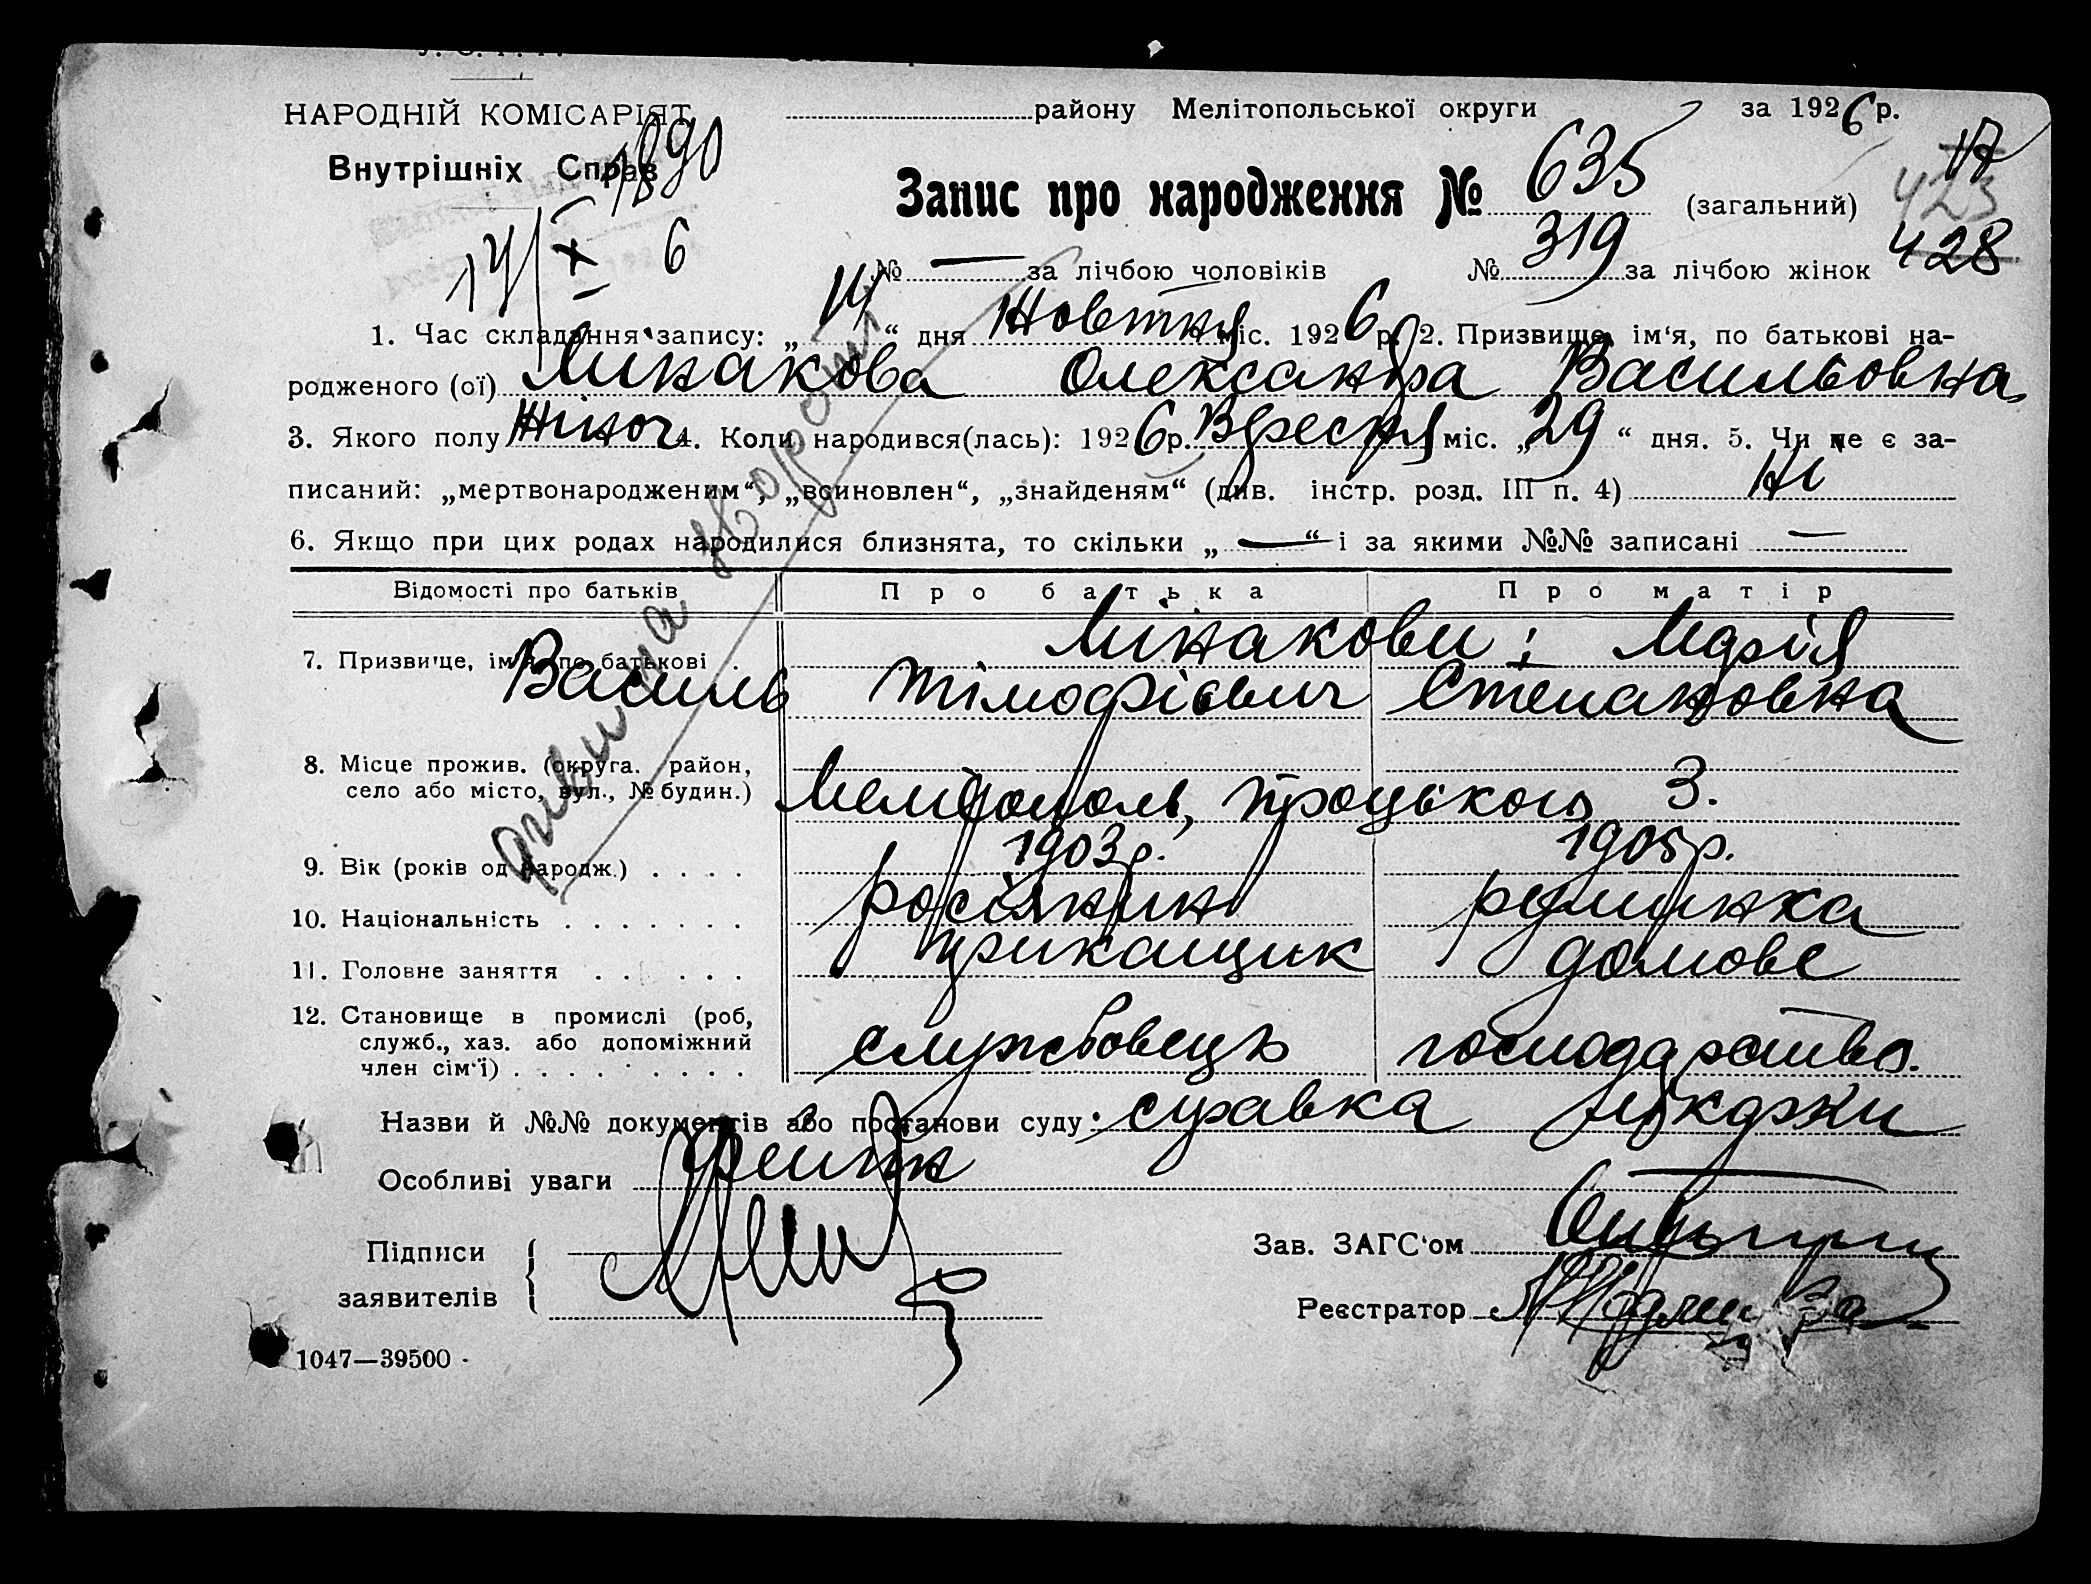 НАРОДНІЙ КОМІСАРІЯТ
Внутрішніх Справ
1890
14/X 6
району Мелітопольської округи за 1926 р.
17
Запис про народження № 635 (загальний) 423
№ — за лічбою чоловіків № 319 за лічбою жінок 428
1. Час складання запису: „14“ дня Жовтня міс. 1926 р. 2. Призвище, ім'я, по батькові на-
родженого (ої) Минакова Олександра Васильовна
3. Якого полу жіноч 4. Коли народився(лась): 1926 р. Вересня міс. „29“ дня. 5. Чи не є за-
писаний: „мертвонародженим“, „всиновлен“, „знайденям“ (див. інстр. розд. III п. 4) ні
6. Якщо при цих родах народилися близнята, то скільки „—“ і за якими №№ записані —
Відомості про батьків Про батька Про матір
7. Призвище, ім'я, по батькові . Минакови: Марія
Василь Тімофієвич Степановна
8. Місце прожив. (округа. район,
село або місто, вул., № будин.) Мелітополь, Троцького 3.
9. Вік (років од народж.) . . . . 1903 р. 1905 р.
10. Національність . . . . . . . росіянин
11. Головне заняття . . . . . . прикащик домове
12. Становище в промислі (роб,
служб., хаз. або допоміжний
член сім'ї) . . . . . . . . . . службовець господарство.
Назви й №№ документів або постанови суду: справка
Особливі уваги
Підписи
заявителів
Зав. ЗАГС'ом
Реєстратор
1047—39500